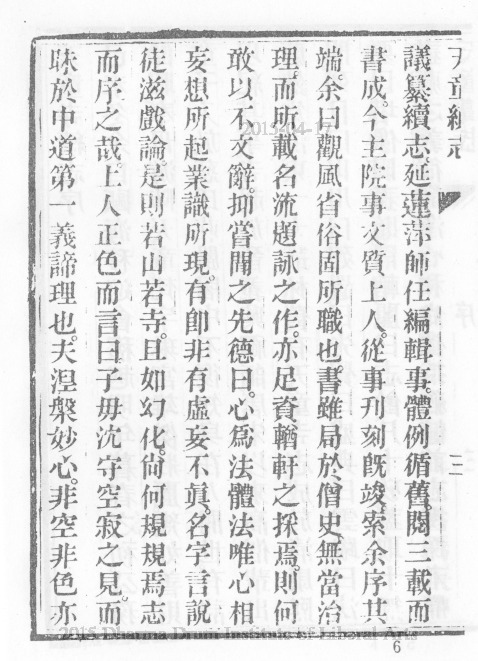 天童續志
二
議纂續志。延蓮萍師任編輯事。體例循舊。閱三載而
書成。今主院事文質上人。從事刊刻旣竣。索余序其
端。余曰觀風省俗固所職也。書雖局於僧史。無當治
理。而所載名流題詠之作。亦足資輶軒之採焉。則何
敢以不文辭。抑嘗聞之先德曰。心爲法體法唯心相
妄想所起業識所現。有卽非有虛妄不眞。名字言說
徒滋戲論。是則若山若寺。且如幻化。尙何規規焉志
而序之哉。上人正色而言曰子毋沈守空寂之見。而
昧於中道第一義諦理也。夫涅槃妙心。非空非色亦
2015-04-1
2015 Dharma Drum Institute of Liberal Arts
6